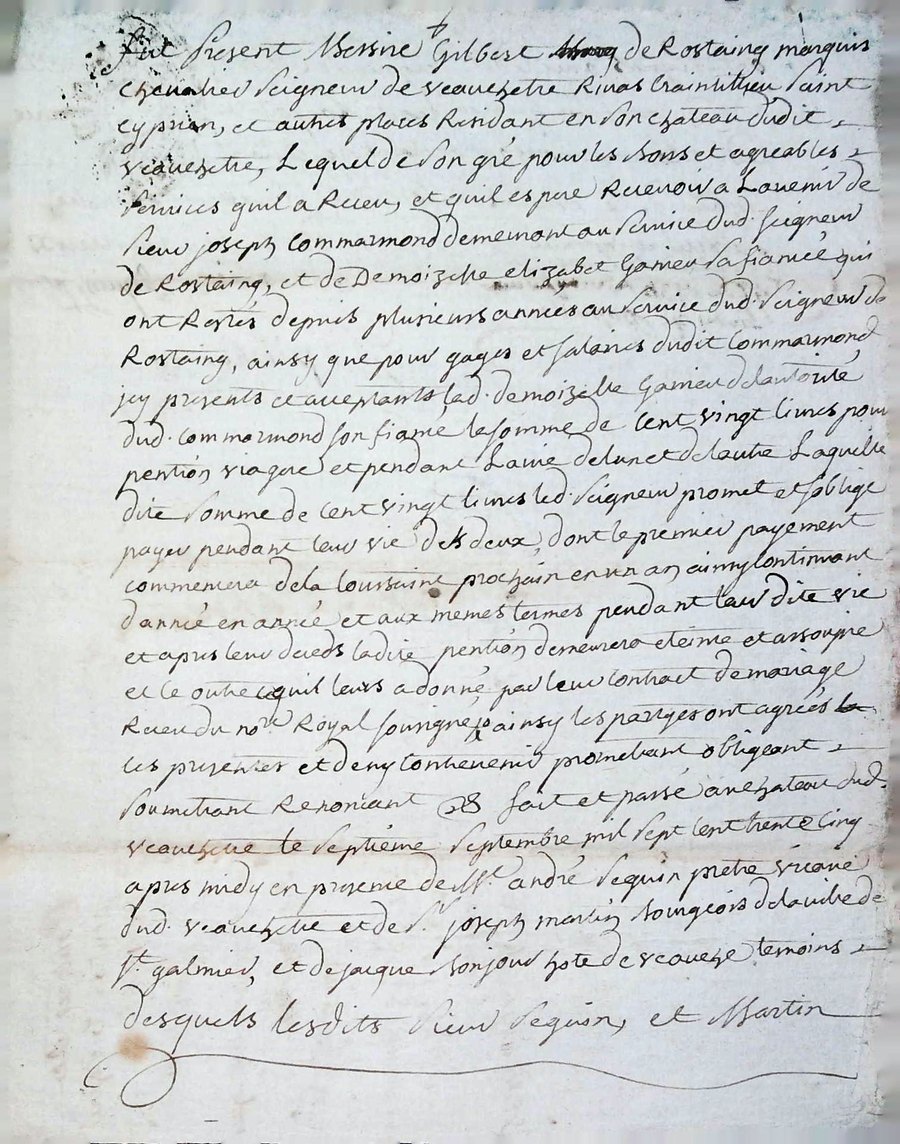 Fut Present Messire Gilbert de Rostaing marquis
chevalier Seigneur de veauchette Rivas Craintillieu Saint
cyprien, et autres places Residant en son chateau dudit
veauchette, Lequel de son gré pour les bons et agreables
services quil a Receu, et quil espere Recevoir a Lavenir de
Sieur joseph Commarmond demeurant au service dud. seigneur
de Rostaing, et de Demoizelle elizabet Garieu sa fiancée qui
ont Restés depuis plusieurs années au service dud. Seigneur de
Rostaing, ainsy que pour gages et salaires dudit Commarmond
jcy presents et acceptants lad. demoizelle Garieu de lautorité
dud. Commarmond son fiancé, la somme de Cent vingt livres pour
pention viagere et pendant La vie de lun et de lautre Laquelle
dite somme de Cent vingt livres led. Seigneur promet et soblige
payer pendant leur vie des deux, dont le premier payement
commencera de la toussaint prochain en un an ainsy continuant
dannée en année et aux memes termes pendant leur dite vie
et apres leur deceds ladite pention demeurera eteinte et assoupie
et ce outre cequil leurs a donné par leur Contract de mariage
Receu du nore Royal soussigné, ainsy les partyes ont agréés
les presentes et deny Contrevenir promettant obligeant
soumettant Renoncant &a fait et passé au chateau dud.
veauchette le septiéme Septembre mil sept cent trente Cinq
apres midy en presence de Mre andré Seguin pretre vicaire
dud. veauchette et de Sr. joseph martin bourgeois de la ville de
St. galmier, et de jacque bonjour hote de veauche temoins
desquels lesdits Sieur Seguin, et Martin